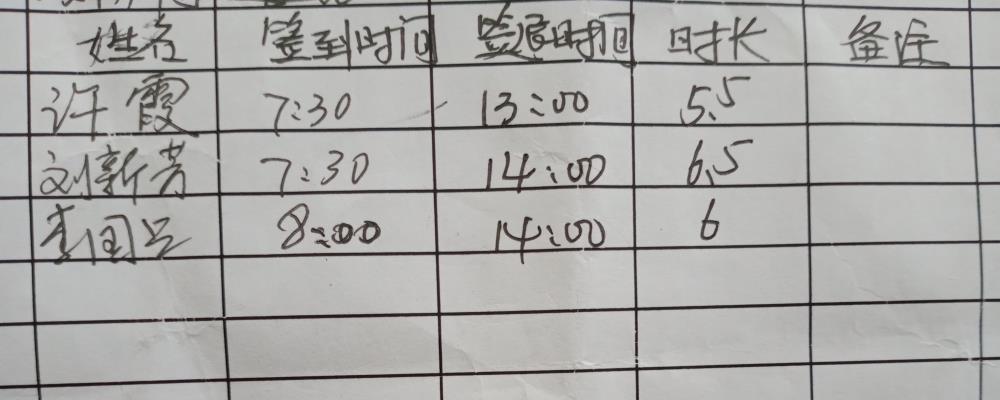 姓名 签到时间 签退时间 时长 备注
许霞 7:30 13:00 5.5
刘新芳 7:30 14:00 6.5
8:00 14:00 6